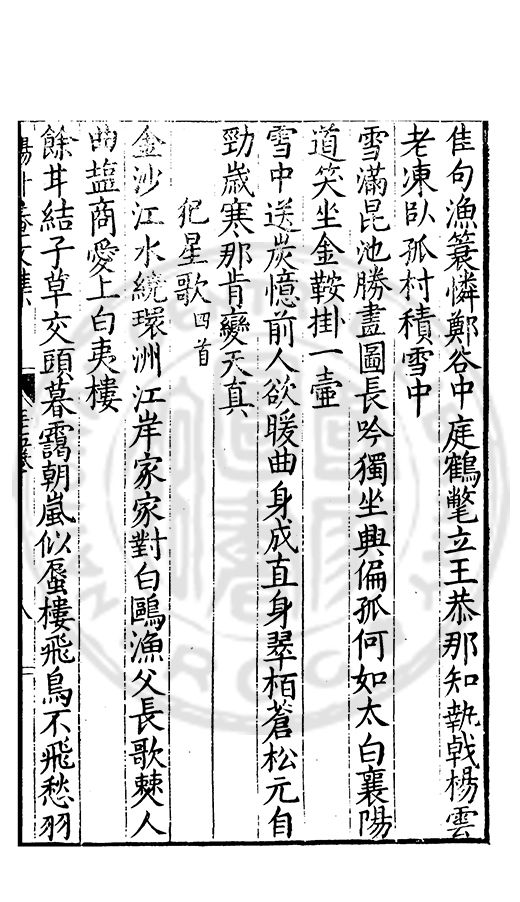 佳句漁簑憐鄭谷中庭鶴氅立王恭那知執戟楊雲
老凍臥孤村積雪中
雪滿昆池勝畫圖長吟獨坐興偏孤何如太白襄陽
道笑坐金鞍掛一壺
雪中送炭憶前人欲暖曲身成直身翠栢蒼松元自
勁歲寒那肯變天真
犯星歌四首
金沙江水繞環洲江岸家家對白鷗漁父長歌僰人
曲鹽商愛上白夷樓
餘甘結子草交頭暮靄朝嵐似蜃樓飛鳥不飛愁羽